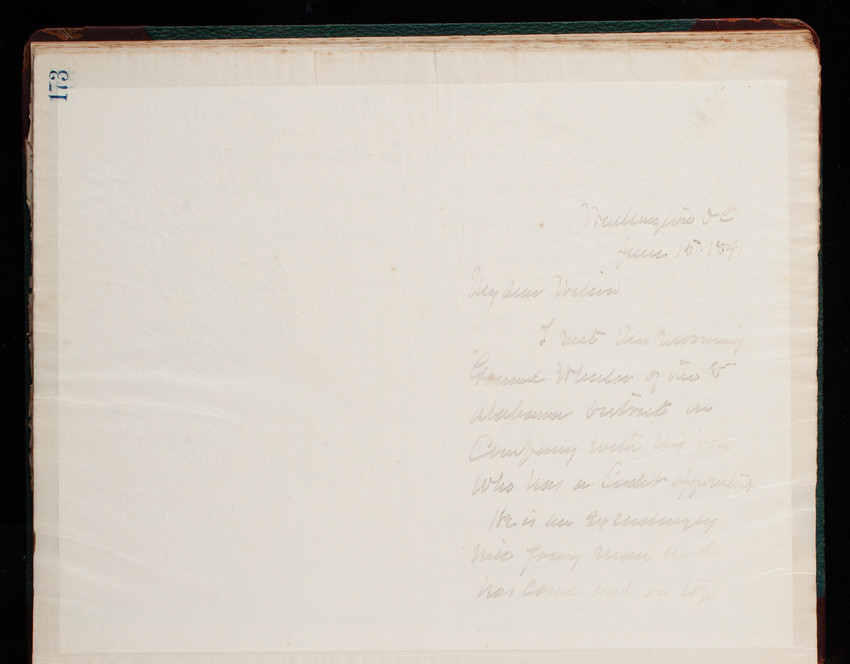 173
Washington D C
June 15- 189
My dear Wilson
I met this morning
General Wheeler of the 8
Alabama District in
Company with his son
who has a Cadet appointm
He is an exceedingly
nice young man and
has come out on top